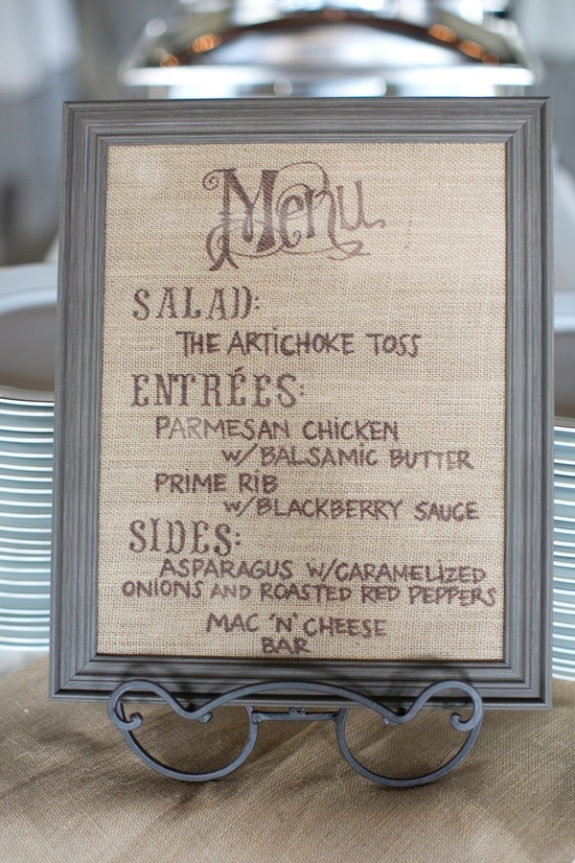 Menu
SALAD:
THE ARTiCHOKE TOSS
ENTRÉES:
PARMESAN CHiCKEN
w/BALSAMiC BUTTER
PRiME RiB
w/BLACKBERRY SAUCE
SIDES:
ASPARAGUS w/CARAMELiZED
ONiONS AND ROASTED RED PEPPERS
MAC 'N' CHEESE
BAR